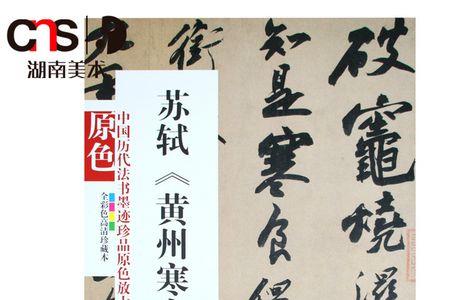 cns
湖南美术
原色
中国历代法书墨迹珍品原色放大
全彩色高清珍藏本
苏轼《黄州寒
破竈燒濕
知是寒食但
銜